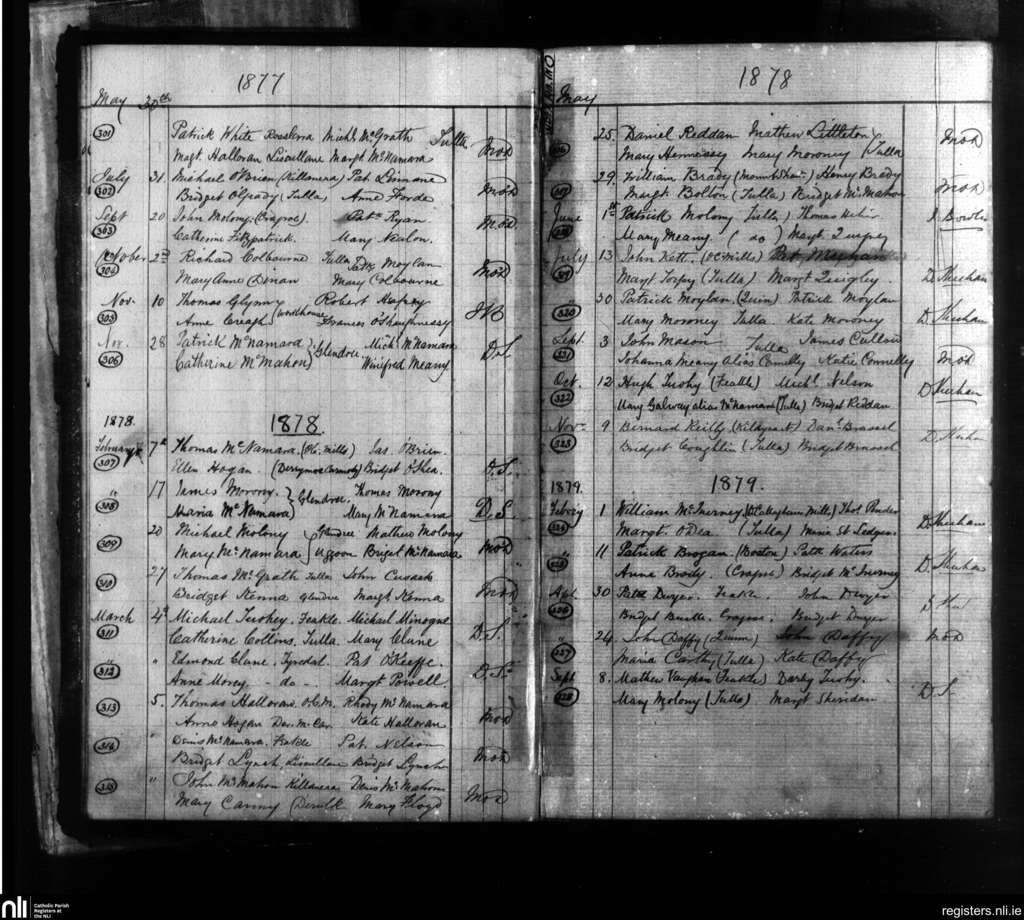 1877
May 30th
301 Patrick White Rosslara Michl McGrath Tulla
Magt. Halloran Liscullane Margt McNamara Mod
July 31. Michael O'Brien (Killanena) Pat
302 Bridget (Tulla) Anne Forde Mod
Sept 20 John Molony (Cragroe) Patk Ryan Mod
303 Catherine Fitzpatrick. Mary Nealon.
October 2nd Richard Colbourne Tulla Patk Moylan
304 Mary Anne Dinan Mary Colbourne Mod
Nov. 10 Thomas Glynny Robert
305 Anne Creagh (Workhouse Frances O'Shaughnessy
Nov. 28 Patrick McNamara Glendree Michl McNamara D.S.
306 Catherine McMahon Winifred Meany
1878. 1878.
February 7th Thomas McNamara. (O'C. Mills) Jas. O'Brien
307 Ellen Hogan. Bridget O'Shea. D.S.
" 17 James Morony. Glendree. Thomas Morony
308 Maria McNamara Mary McNamara D.S.
20 Michael Molony Glendree Mathew Molony
309 Mary McNamara Uggoon Briget McNamara Mod
27 Thomas McGrath Tulla John Cusack
310 Bridget Kenna Glendree Margt Kenna Mod
March 4th Michael Tuohey. Feakle. Michael Minogue
311 Catherine Collins. Tulla. Mary Clune D.S.
" " Edmond Clune. Pat O'Keeffe.
312 Anne Morey - do - Margt Powell. D.S.
5. Thomas Halloran. O.C.M. Rhody McNamara
313 Anne Hogan Kate Halloran Mod
" Denis McNamara. Feakle Pat. Nelson
314 Bridget Lynch Liscullane Bridget Lynch Mod
" John McMahon Killanena Denis McMahon
315 Mary Canny Mary Floyd Mod
1878
May
25. Daniel Reddan Mathew Littleton Mod
Mary Hennessy Mary Moroney (Tulla
29. William Brady Henry Brady
Margt. Bolton (Tulla) Bridget McMahon Mod
June 1st Patrick Molony Tulla) Thomas J. Bowles
Mary Meany. (do) Margt.
July 13 John Kett. (O'C Mills) Pat Meehan
Margt Torpey (Tulla) Margt Quigley. D. Sheehan
" 30 Patrick Moylan. (Quin) Patrick Moylan
320 Mary Moroney Tulla. Kate Moroney D. Sheehan
Sept. 3 John Mason Tulla James Cullen
321 Johanna Meany alias Connelly Katie Connelley Mod
Oct. 12 Hugh Tuohy (Feakle) Michl. Nelson
322 Mary Galway alias McNamara (Tulla) Bridget Reddan D Sheehan
Nov. 9 Bernard Reilly Danl. Brassel
323 Bridget Coughlin (Tulla) Bridget Brassel
1879. 1879.
1 William McInerney Thos.
Margt. O'Dea (Tulla) D. Sheehan
" 11 Patrick Brogan. (Boston) Patk Waters
Anne Brody. (Cragroe) Bridget McInerney D. Sheehan
Apl 30 Patk Dwyer. Feakle. John Dwyer
326 Bridget Cragroe. Bridget Dwyer
" 24 John Daffy (Quinn) John Daffy Mod
327 Maria Carthy (Tulla) Kate Daffy
Sept 8. Mathew Vaughan (Feakle) Darby Tuohy.
328 Mary Molony (Tulla) Margt Sheridan D.S.
nli Catholic Parish
Registers at
the NLI
registers.nli.ie